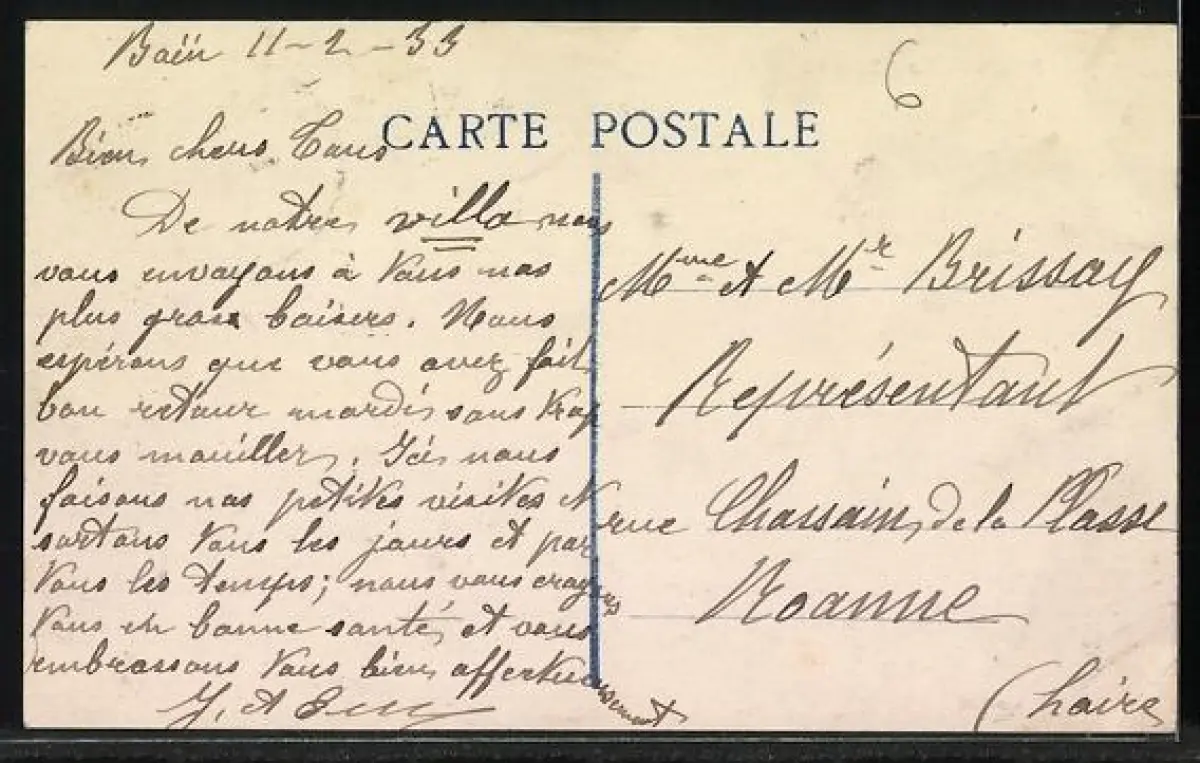 11-2-33
6
Bien chers Tous
CARTE POSTALE
De notre villa nous
vous envoyons à Tous nos
plus gros baisers. Nous
espérons que vous avez fait
bon retour mardi, sans trop
vous mouiller. Ici nous
faisons nos petites visites et
sortons tous les jours et par
tous les temps; nous vous croyons
tous en bonne santé, et vous
embrassons tous bien affectueusement
J. et
Mme et Mr Brissay
Représentant
rue Chassain de la Plasse
Roanne
(Loire